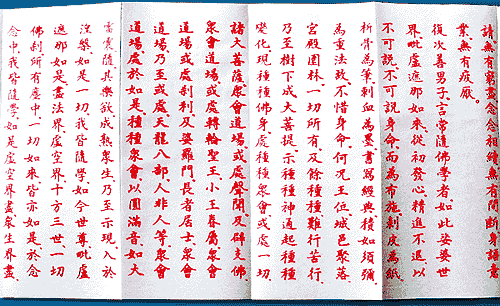 請無有窮盡念念相續無有間斷身語意
業無有疲厭。
復次善男子言常隨佛學者如此娑婆世
界毗盧遮那如來從初發心精進不退以
不可說不可說身命而為布施剝皮為紙
析骨為筆刺血為墨書寫經典積如須彌
為重法故不惜身命何況王位城邑聚落
宮殿園林一切所有及餘種種難行苦行
乃至樹下成大菩提示種種神通起種種
變化現種種佛身處種種眾會或處一切
諸大菩薩眾會道場或處聲聞及辟支佛
眾會道場或處轉輪聖王小王眷屬眾會
道場或處剎利及婆羅門長者居士眾會
道場乃至或處天龍八部人非人等眾會
道場處於如是種種眾會以圓滿音如大
雷震隨其樂欲成熟眾生乃至示現入於
涅槃如是一切我皆隨學如今世尊毗盧
遮那如是盡法界虛空界十方三世一切
佛剎所有塵中一切如來皆亦如是於念
念中我皆隨學如是虛空界盡眾生界盡